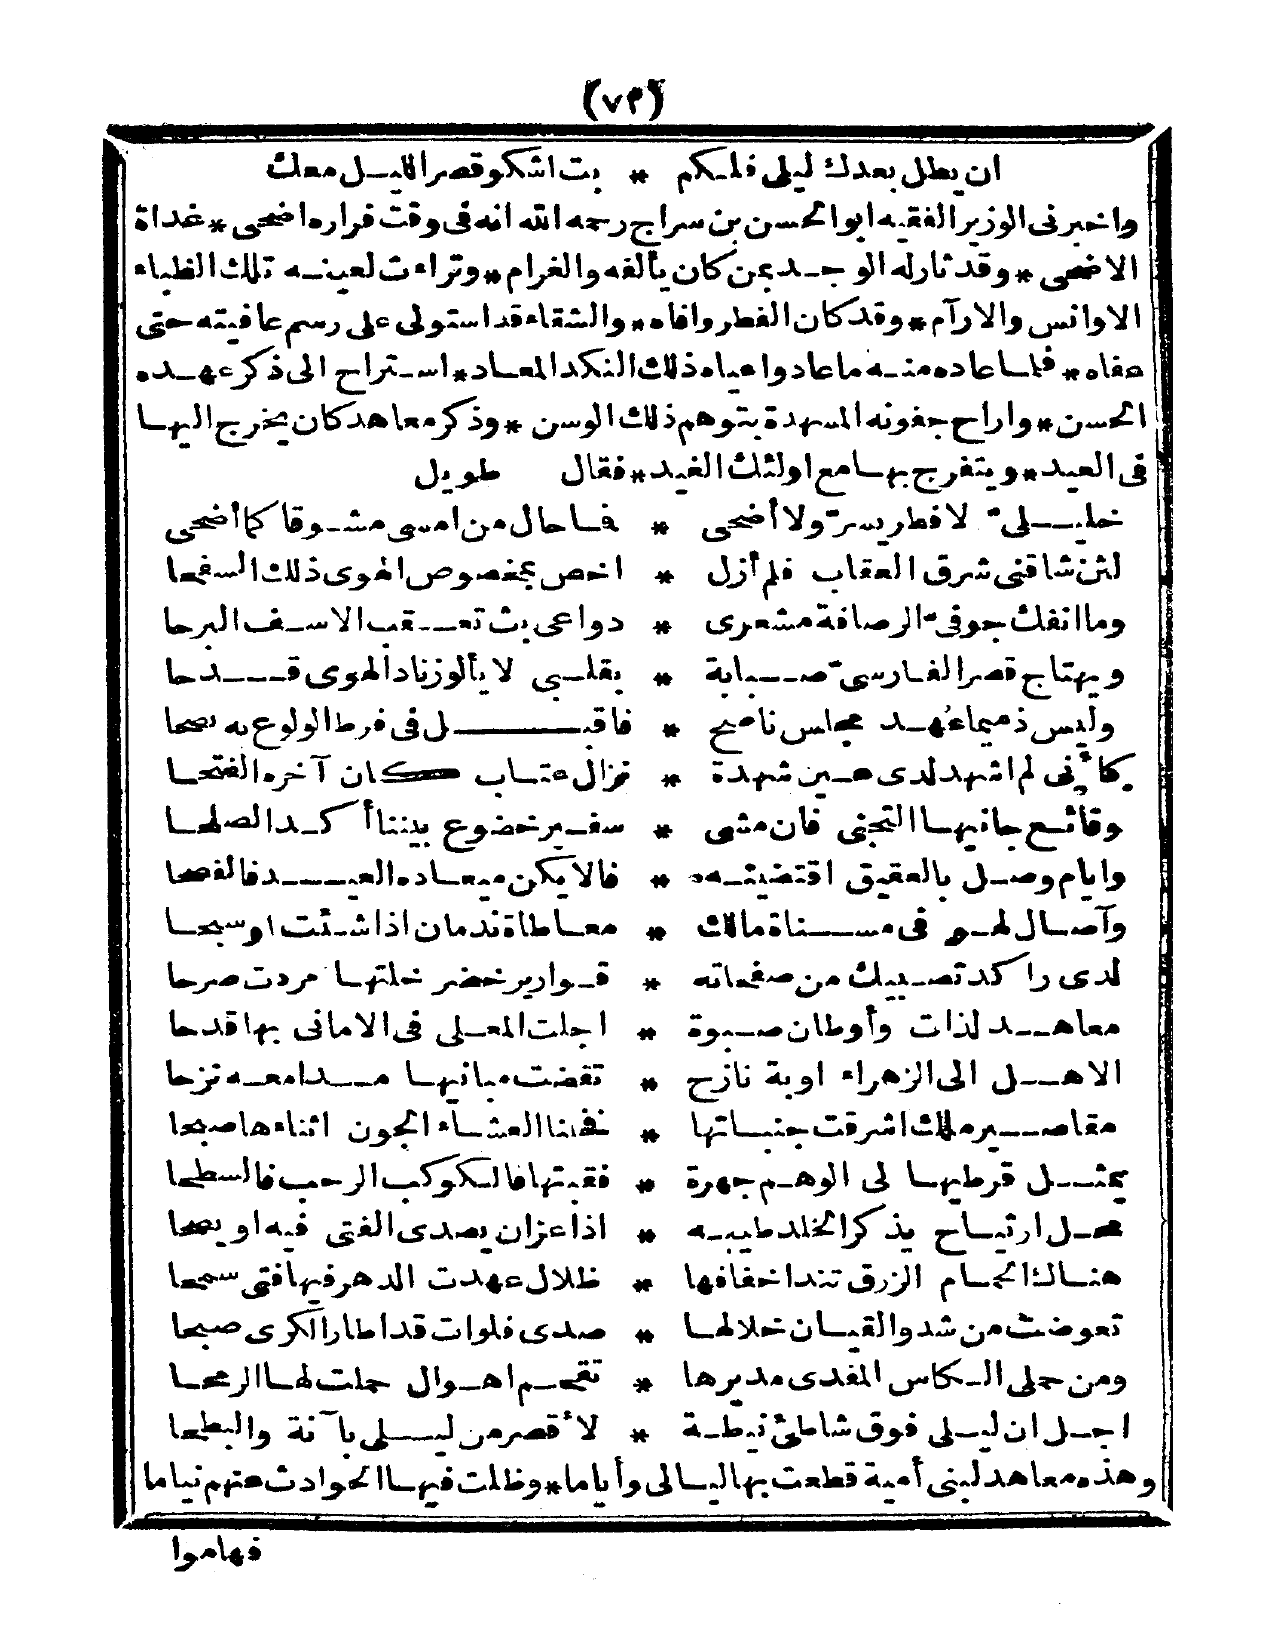 (٧٣)
ان يطل بعدك ليلى فلكم * بت اشكو قصر الليل معك
واخبرنى الوزير الفقيه ابو الحسن بن سراج رحمه الله انه فى وقت فراره اضحى * غداة
الاضحى * وقد ثار له الوجد بمن كان يألفه والغرام * وتراءت لعينه تلك الظباء
الاوانس والارآم * وقد كان الفطر وافاه * والشقاء قد استولى على رسم عافيته حتى
عفاه * فلما عاده منه ما عاد واعياه ذلك النكد المعاد * استراح الى ذكر عهده
الحسن * واراح جفونه المسهدة بتوهم ذلك الوسن * وذكر معاهد كان يخرج اليها
فى العيد * ويتفرج بها مع اولئك الغيد * فقال طويل
خليلىّ لا فطر يسرّ ولا أضحى * فما حال من امسى مشوقا كما أضحى
لئن شاقنى شرق العقاب فلم أزل * اخص بمخصوص الهوى ذلك السفحا
وما انفك جوفىّ الرصافة مشعرى * دواعى بث تعقب الاسف البرحا
ويهتاج قصر الفارسىّ صبابة * بقلبى لا يألو زناد الهوى قدحا
وليس ذميما عهد مجلس ناصح * فاقبل فى فرط الولوع به نصحا
كأنى لم اشهد لدى عين شهدة * نزال عتاب كان آخره الفتحا
وقائع جانيها التجنى فان مشى * سفير خضوع بيننا أكد الصلحا
وايام وصل بالعقيق اقتضيته * فالا يكن ميعاده العيد فالفصحا
وآصال لهو فى مسناة مالك * معاطاة ندمان اذا شئت او سبحا
لدى راكد تصبيك من صفحاته * قوارير خضر خلتها مردت صرحا
معاهد لذات وأوطان صبوة * اجلت المعلى فى الامانى بها قدحا
الا هل الى الزهراء اوبة نازح * تقضت مبانيها مدامعه نزحا
مقاصير ملك اشرقت جنباتها * فخلنا العشاء الجون اثناءها صبحا
يمثل قرطيها لى الوهم جهرة * فقبتها فالكوكب الرحب فالسطحا
محل ارتياح يذكر الخلد طيبه * اذا عز ان يصدى الفتى فيه او يضحا
هناك الحمام الزرق تندا خفافها * ظلال عهدت الدهر فيها فتى سمحا
تعوضت من شدو القيان خلالها * صدى فلوات قد اطار الكرى صبحا
ومن حملى الكاس المفدى مديرها * تقحم اهوال حملت لها الرمحا
اجل ان ليلى فوق شاطئ نيطة * لأقصر من ليلى بآنة والبطحا
وهذه معاهد لبنى أمية قطعت بها ليالى وأياما * وظلت فيها الحوادث عنهم نياما
فهاموا